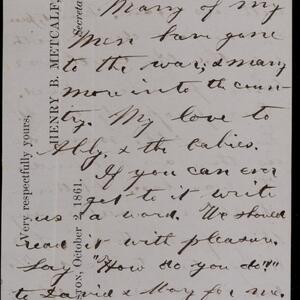 Many of my
Men have gone
to the war, & many
more into the coun-
try. My love to
Abby, & the babies.
If you can ever
get to it write
us a word. We should
read it with pleasure.
Say "How do you do?"
to David & May for me.
Very respectfully yours,
HENRY B. METCALF,
Secreta
STON, October 2, 1861.